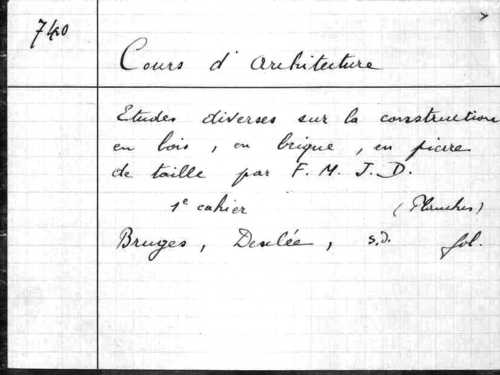 740
Cours d'Architecture
Etudes diverses sur la construction
en bois, en brique, en pierre
de taille par F. M. J. D.
1e cahier (Planches)
Bruges, Desclée, s.d. fol.